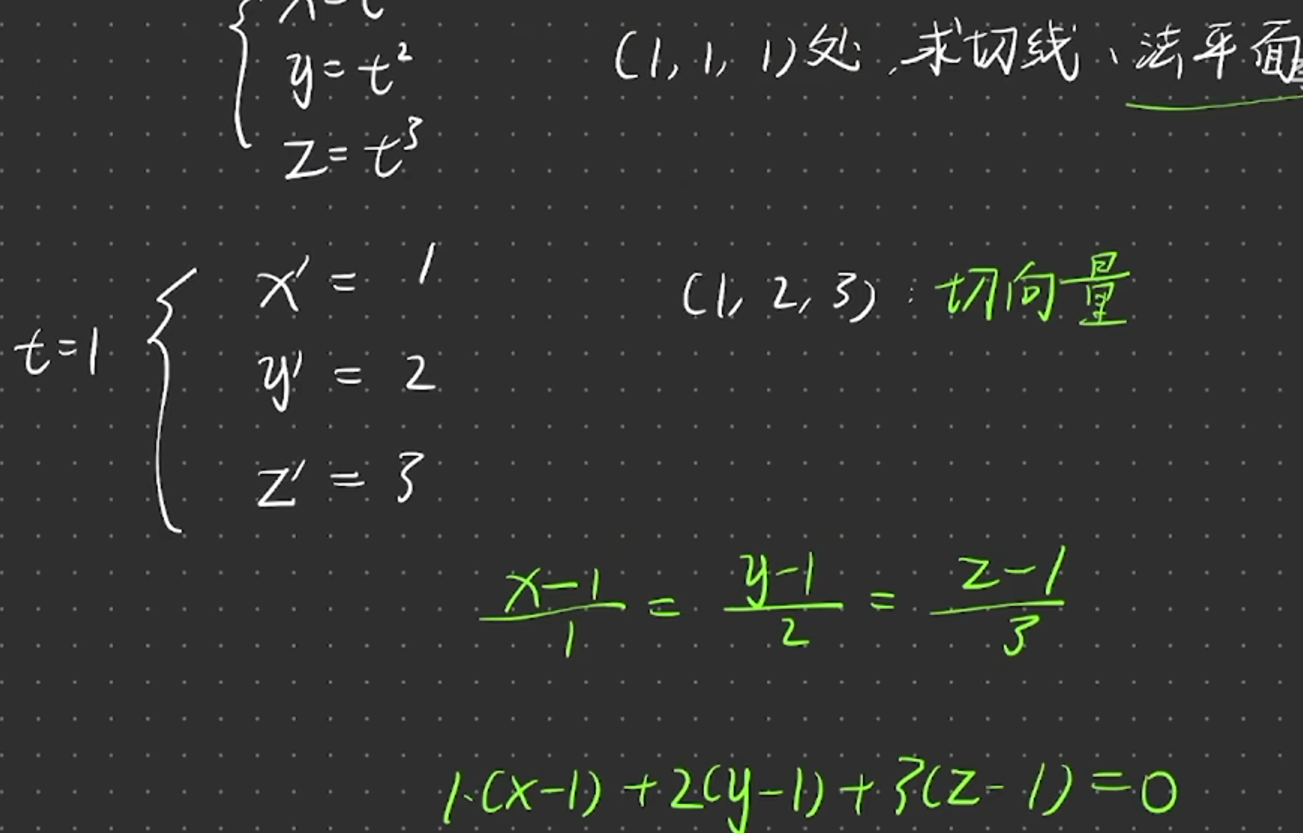 x=t
y=t²
z=t³
(1,1,1)处,求切线、法平面
t=1
x'=1
y'=2
z'=3
(1,2,3):切向量
(x-1)/1=(y-1)/2=(z-1)/3
1·(x-1)+2(y-1)+3(z-1)=0